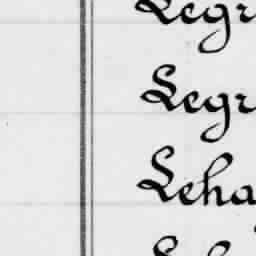 Legr
Legr
Leha